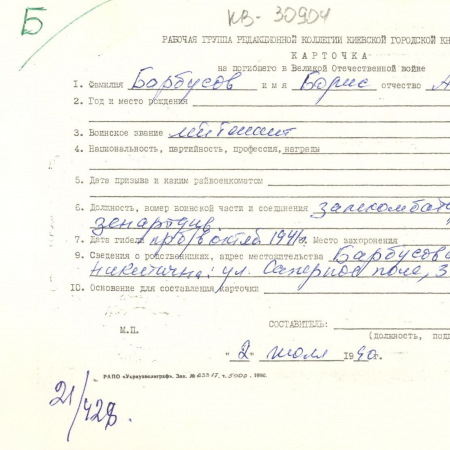 Б
КВ-30904
РАБОЧАЯ ГРУППА РЕДАКЦИОННОЙ КОЛЛЕГИИ КИЕВСКОЙ ГОРОДСКОЙ КН
КАРТОЧКА
на погибшего в Великой Отечественной войне
1. Фамилия Барбусов имя Борис отчество А
2. Год и место рождения
3. Воинское звание лейтенант
4. Национальность, партийность, профессия, награды
5. Дата призыва и каким райвоенкоматом
6. Должность, номер воинской части и соединения замкомбат
зенартдив.
7. Дата гибели пр б/в октяб 1941г. Место захоронения
9. Сведения о родственниках, адрес местожительства Барбусова
ул. Саперное поле, 3
10. Основание для составления карточки
СОСТАВИТЕЛЬ:
М.П. (должность, подп
"2" июля 1990г.
РАПО «Укрвузполиграф». Зак. № т. 5000. 1990.
21/428